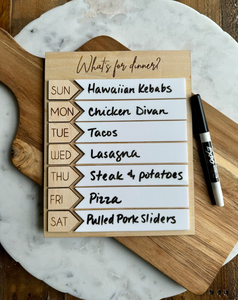 What's for dinner?
SUN Hawaiian Kebabs
MON Chicken Divan
TUE Tacos
WED Lasagna
THU Steak & potatoes
FRI Pizza
SAT Pulled Pork Sliders